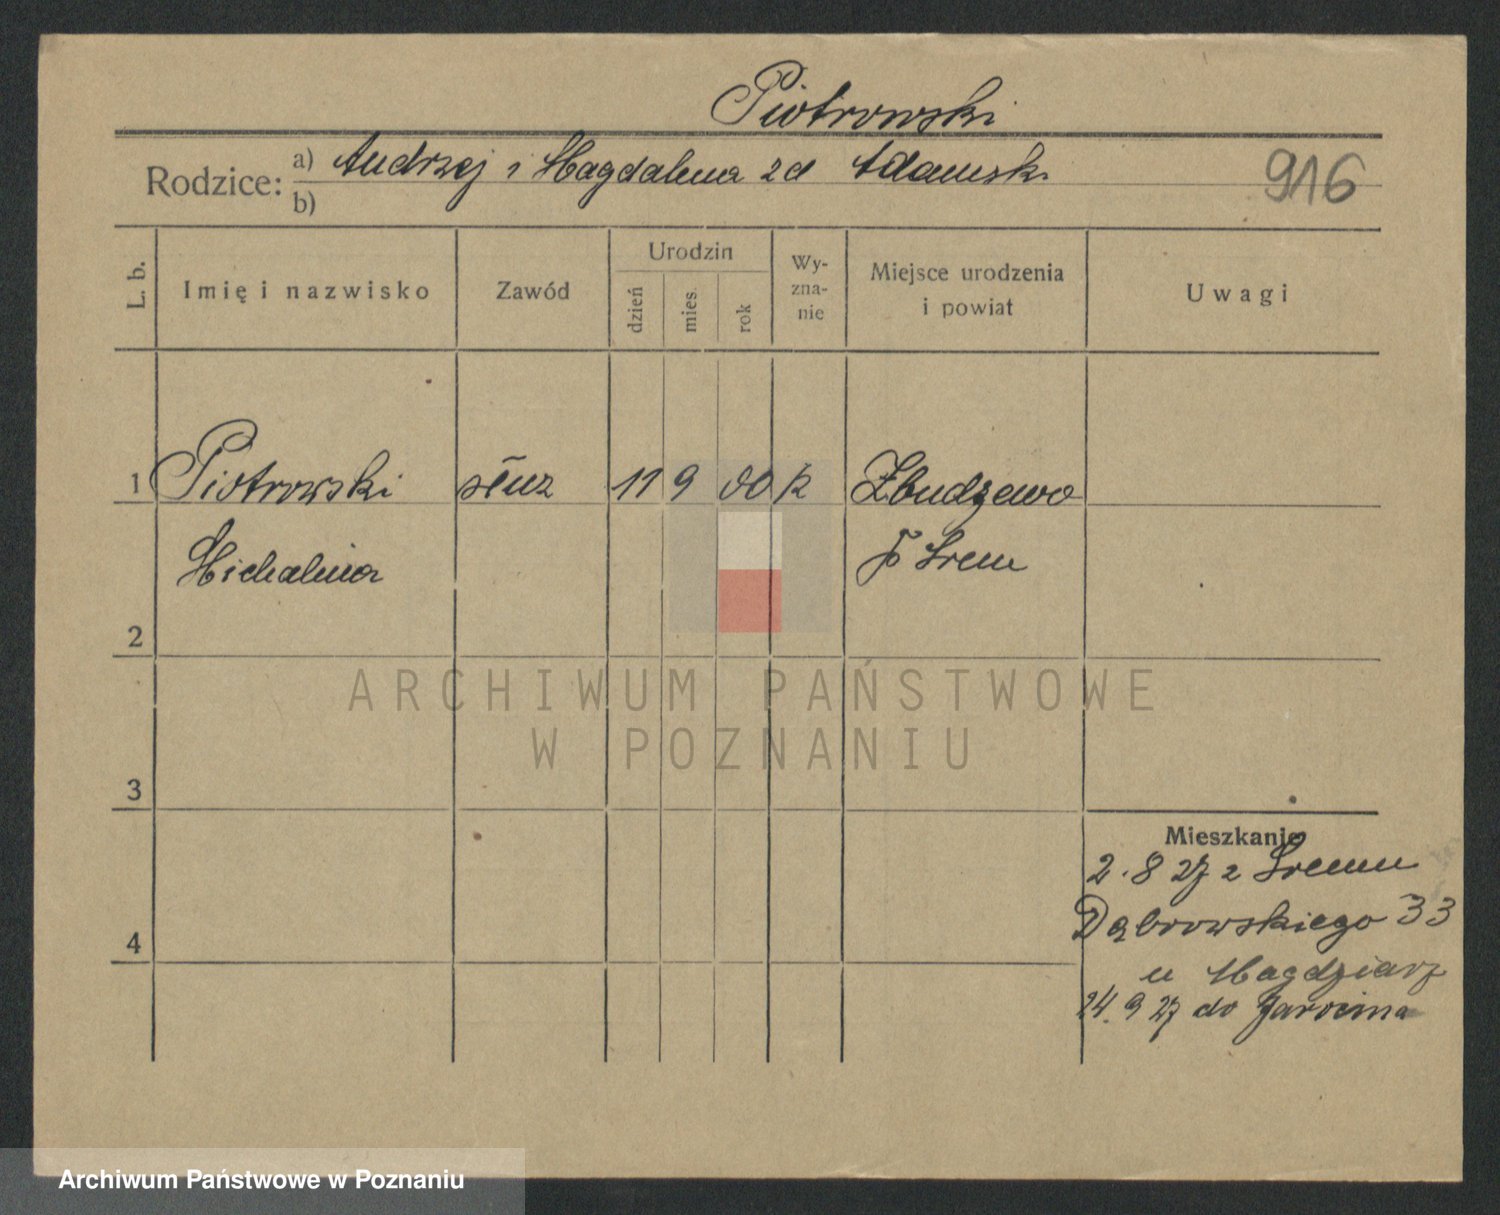 Piotrowski
Rodzice: a) Andrzej i Magdalena zd Adamsk.
b)
916
L. b.
Imię i nazwisko
Zawód
Urodzin
dzień
mies.
rok
Wy-
zna-
nie
Miejsce urodzenia
i powiat
Uwagi
1 Piotrowski służ 11 9 00 k Zbudzewo
Michalina p Śrem
2
ARCHIWUM PAŃSTWOWE
W POZNANIU
3
Mieszkanie
2.8 27 z Śremu
Dąbrowskiego 33
4
u Magdziarz
24.9 27 do Jarocina
Archiwum Państwowe w Poznaniu